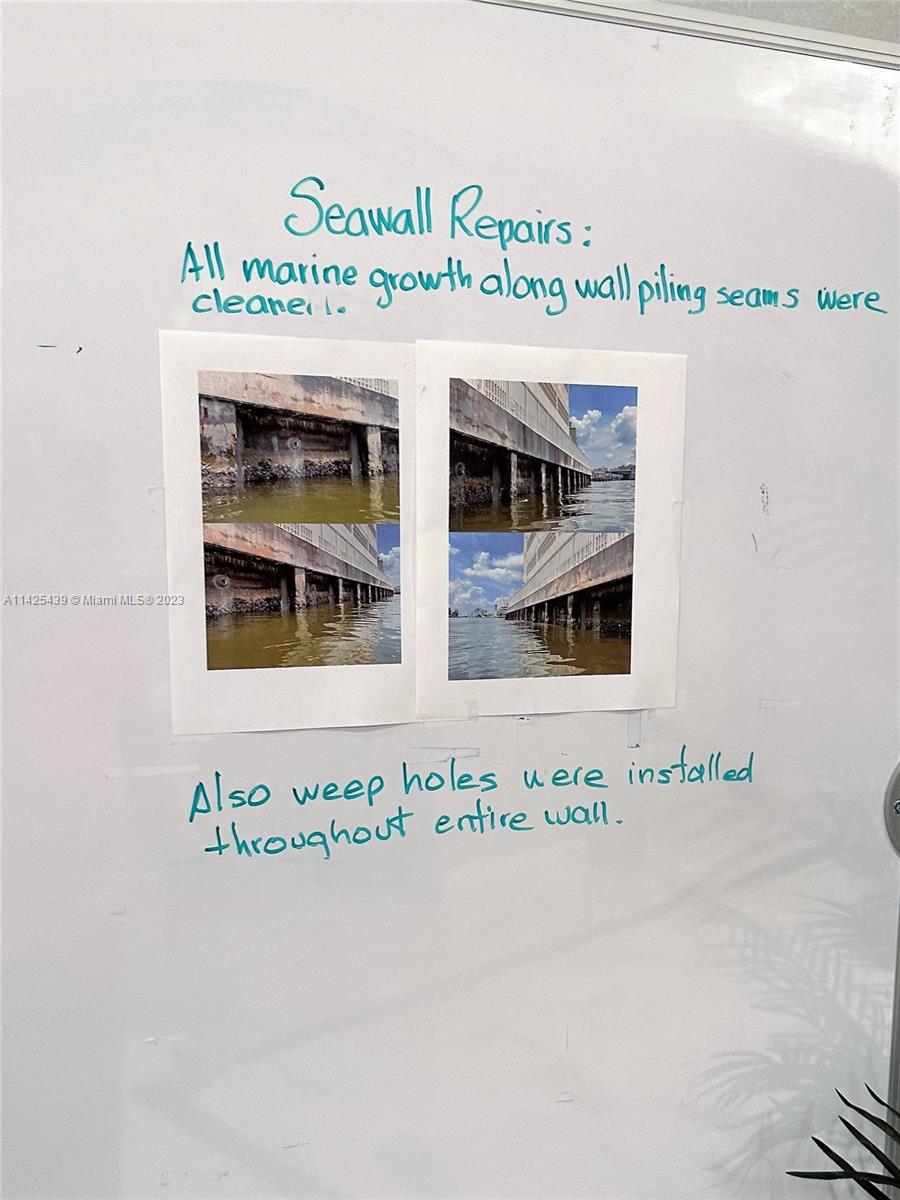 Seawall Repairs:
All marine growth along wall piling seams were
cleaned.
A11425439 © Miami MLS® 2023
Also weep holes were installed
throughout entire wall.